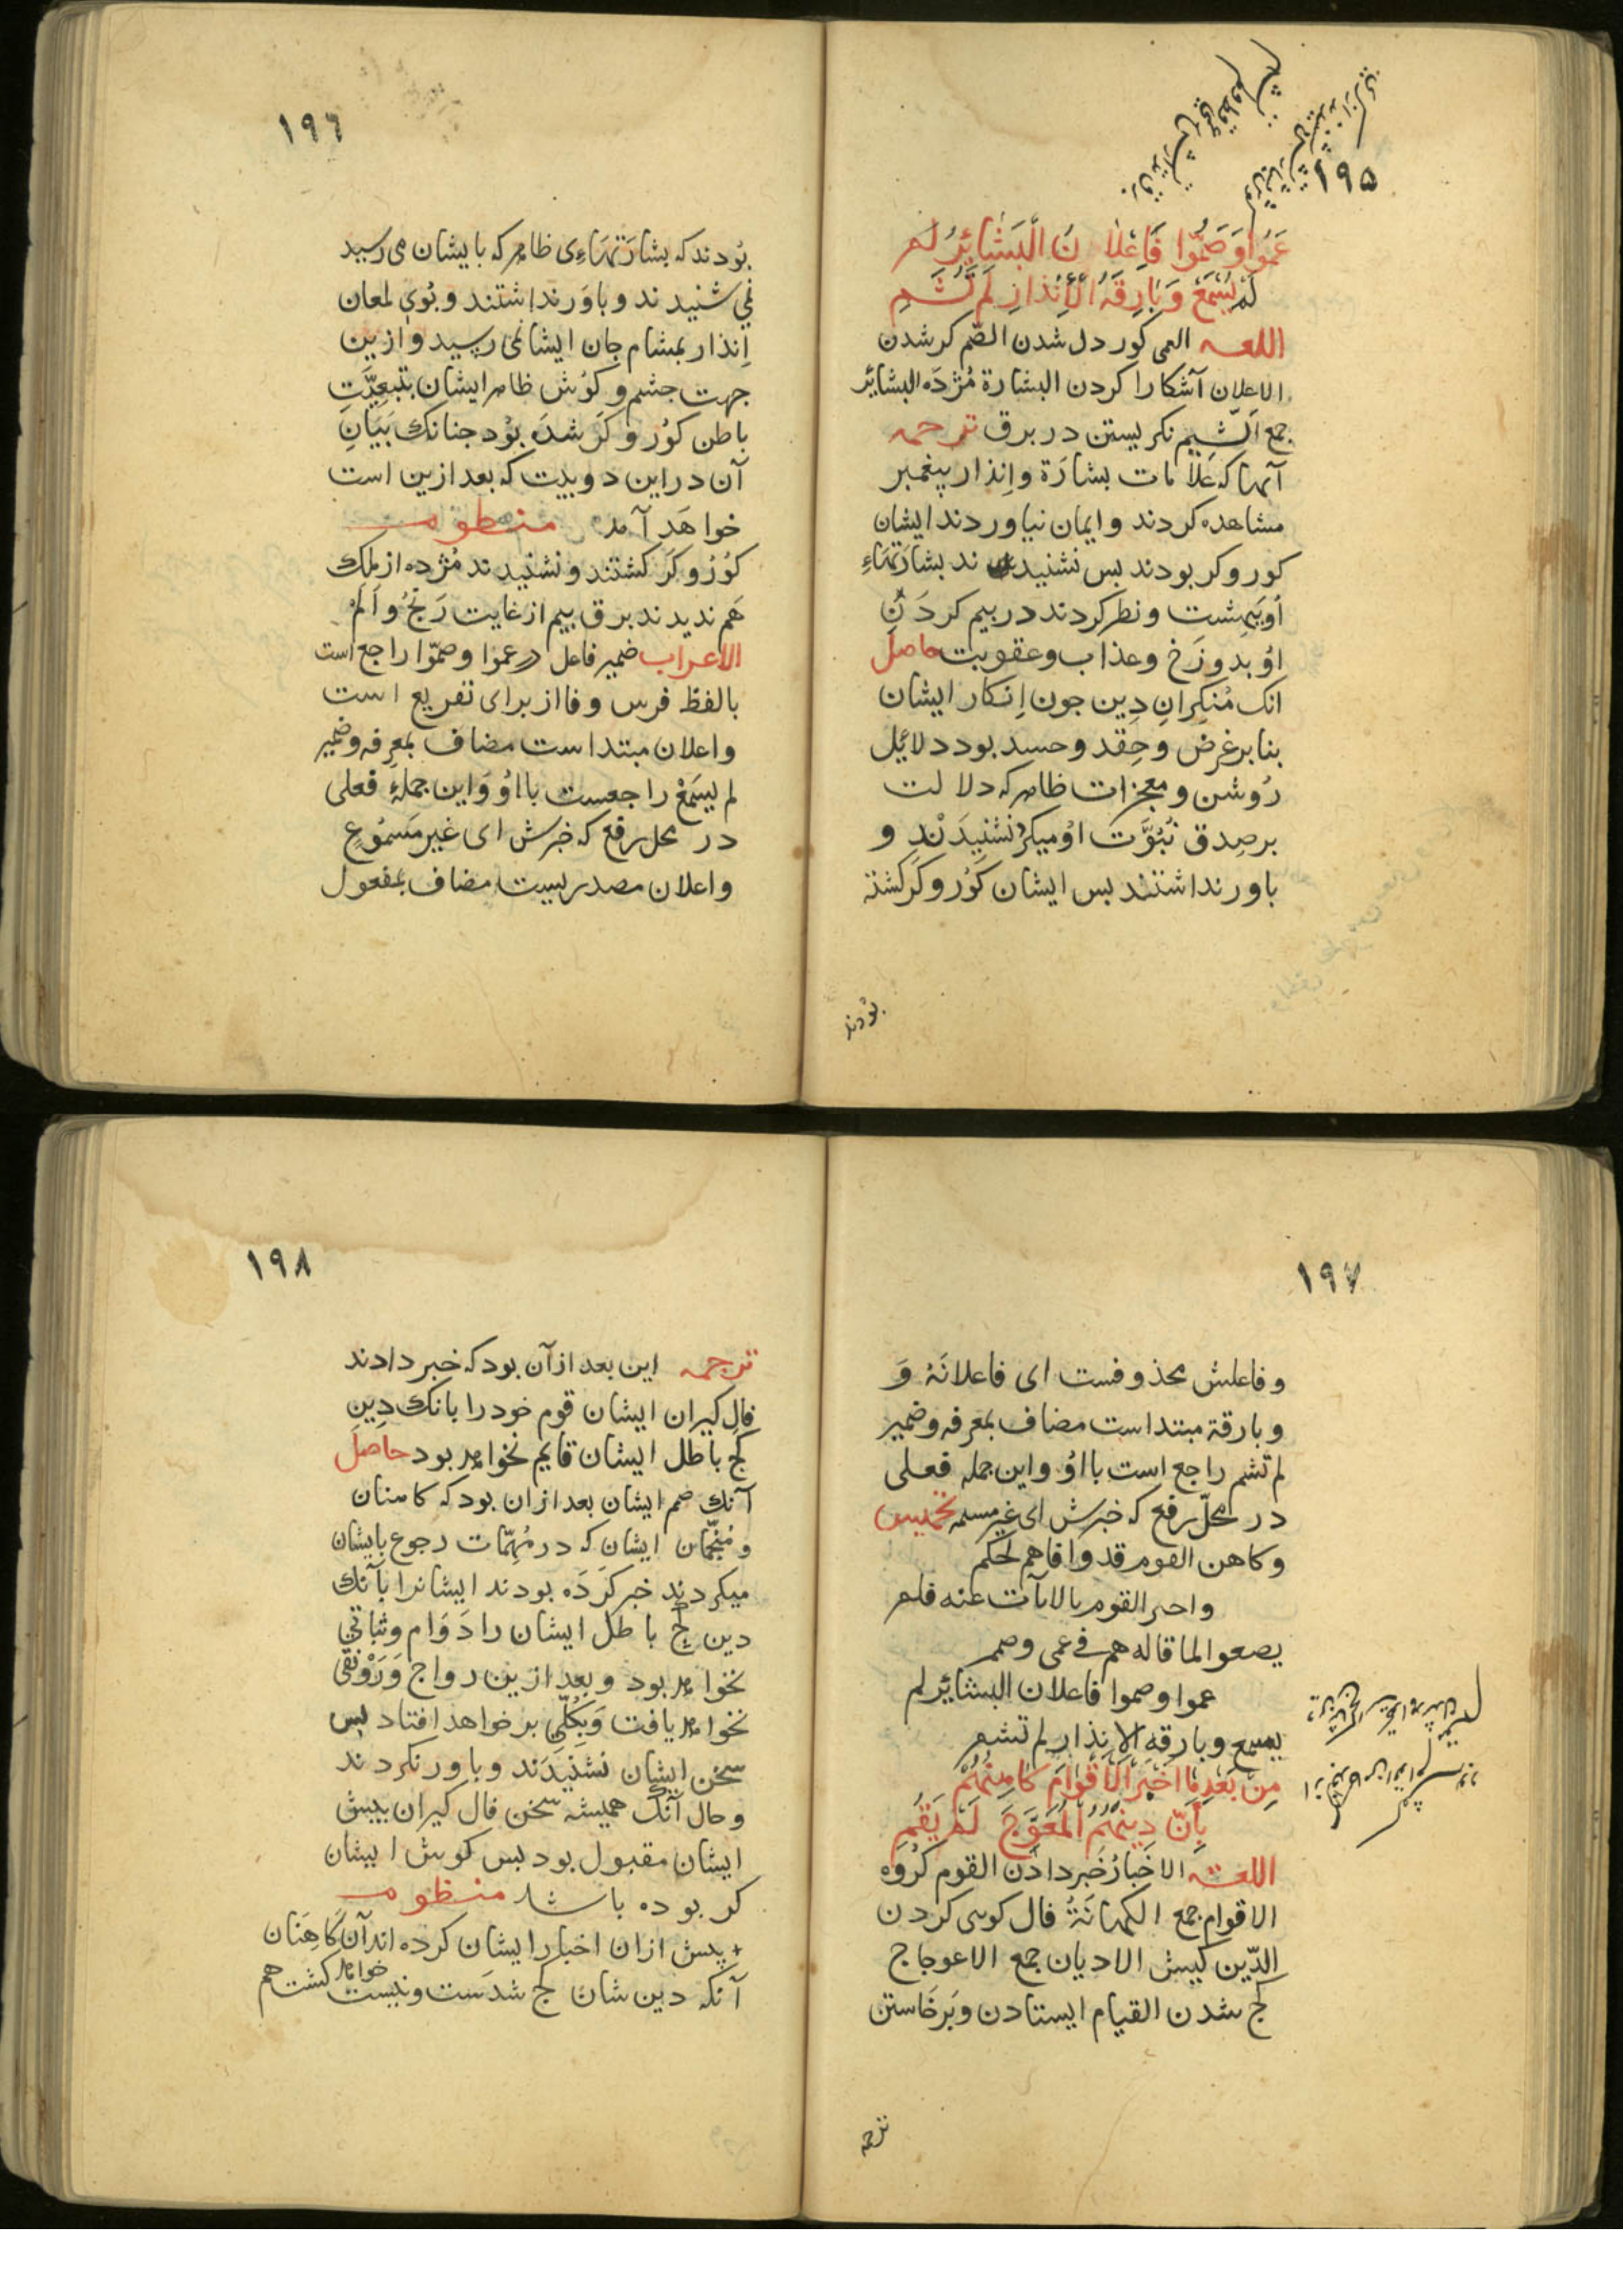 ١٩٥
عَمُوا وَصَمُّوا فَاِعْلَانُ الْبَشَائِرِ لَمْ
لَمْ يُسْمَعْ وَبَارِقَةُ الْأِنْذَارِ لَمْ تُشَمِ
اللغـه العمی کور دل شدن الصّم کر شدن
الاعلان آشکارا کردن البشارة مُژدَه البشائر
جمع اَلشّیم نکریستن در برق ترجمه
آنها که عَلامات بشارَة و اِنذار پیغمبر
مشاهده کردند و ایمان نیاوردند ایشان
کور و کر بودند بس نشنیدند بشارَتهَاءِ
اُو بَبِهِشت و نظر کردند در بیم کردَنِ
اوُ بدوزَخ و عذاب و عقوبت حاصل
انک مُنکِرانِ دِین جون اِنکار ایشان
بنا بر غرض وَ حِقد و حسد بود دلائِل
رُوشن و معجزات ظاهر که دلالت
بر صِدق نُبُوَّت اوُ میکرد نشنیدَنْد و
باور نداشتند بس ایشان کوُر و کَر کشتة
بوُدند
١٩٦
بوُدند که بشارَتهَاءِی ظاهر که بایشان می رسید
نمی شنیدند و باوَر نداشتند و بوُی لمعان
اِنذار بمشام جان ایشا نمی رسید و ازین
جهت جشم و کوُش ظاهر ایشان بتبعِیَّتِ
باطن کوُر و کَر شدَه بوُد جنانك بَیَانِ
آن در این دو بیت که بعد ازین است
خواهَد آمد منظومـه
کوُرُ و کَر کشتند و نشنیدند مُژده از مَلِك
هَم ندیدند برق بیم از غایت رَنجُ و اَلَمْ
الاعراب ضمیر فاعل در عموا و صمّوا راجع است
بالفظ فرس و فا از برای تفریع است
و اعلان مبتدا است مضاف بمعرفه و ضمیر
لم یسَمَعْ راجعست بااوُ وَ این جملهٔ فعلی
در محل رفع که خبرش ای غیر مَسمُوعٍ
و اعلان مصدریست مضاف بمفعول
١٩٧
و فاعلش محذوفست ای فاعلانَهُ وَ
و بارقة مبتدا است مضاف بمعرفه و ضمیر
لم تشم راجع است بااوُ و این جمله فعلی
در محلّ رفع که خبرش ای غیر مسلمه تخمیس
وکاهن القوم قد وافاهم لحکم
واحبر القوم بالایات عنه فلم
یصغوا لما قاله هم فی عمی وصمم
عموا وصموا فاعلان البشائر لم
یسمع وبارقه الانذار لم تشم
مِنْ بَعْدِ مَا اَخْبَرَ الْأَقْوَامَ کَاهِنُهُمْ
بِأَنّ دِینَهُمُ الْمُعْوَجَّ لَمْ یَقُمِ
اللغـه الاخبارُ خَبر دادَن القوم کرُوَه
الاقوام جمع الکهانَةُ فال کوی کردن
الدّین کیش الادیان جمع الاعوجاج
کج شدن القیام ایستادن وبَرخَاستن
ترجمه
١٩٨
ترجمه این بعد از آن بود که خبر دادند
فال کیران ایشان قوم خود را بانك دِینِ
کج باطل ایشان قایم نخواهد بود حاصل
آنك صم ایشان بعد ازان بود که کاهنان
و مُنَجّمان ایشان که در مُهِمّات رجوع بایشان
میکردند خبر کَردَه بودند ایشانرا بآنك
دین کج باطل ایشان را دَوَام و ثباتی
نخواهد بود و بعد ازین رواج وَرَوْنقی
نخواهد یافت وَبِکُلّی بر خواهد افتاد بس
سخن ایشان نشنیدَند و باور نکردند
و حال آنك همیشه سخن فال کیران بیش
ایشان مقبول بود بس کوش ایشان
کر بوده باشد منظومـه
پیش ازان اخبار ایشان کرده اند آن کَاهِنَان
آنکه دین شان کج شدَست و نیست خواهد کشت هم